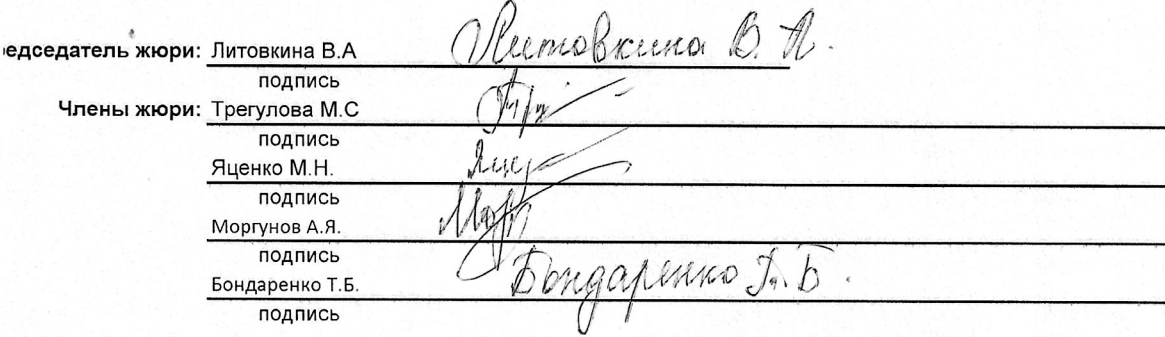 едседатель жюри: Литовкина В.А Литовкина В. А.
подпись
Члены жюри: Трегулова М.С
подпись
Яценко М.Н.
подпись
Моргунов А.Я.
подпись
Бондаренко Т.Б. Бондаренко Т. Б.
подпись